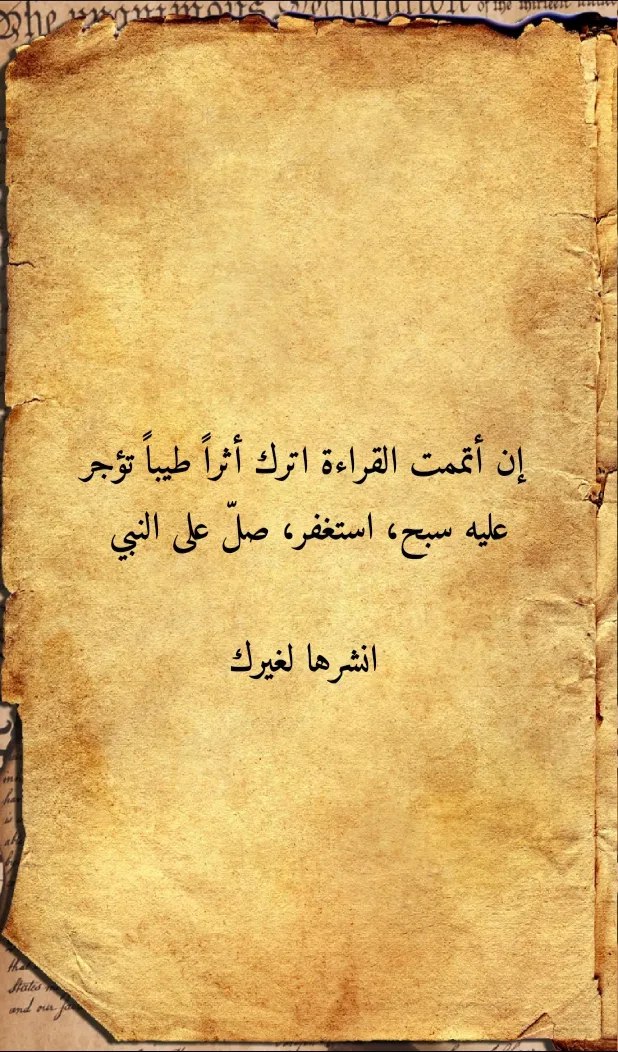 The unanimous Declaration of the thirteen united
إن أتممت القراءة اترك أثراً طيباً تؤجر
عليه سبح، استغفر، صلّ على النبي
انشرها لغيرك
States
and our